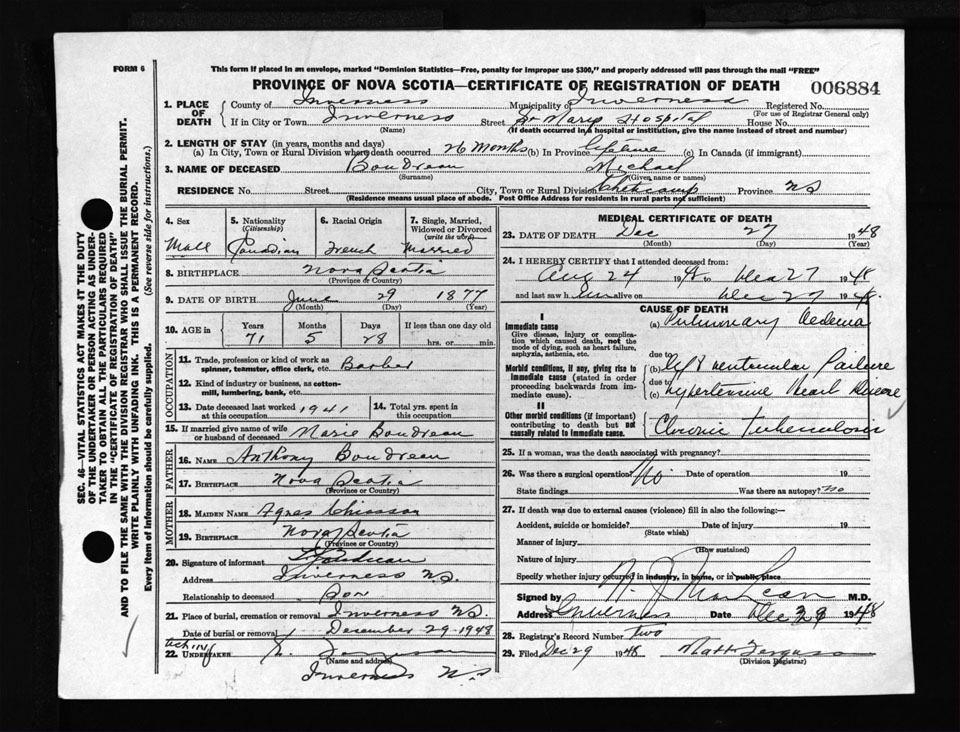 FORM 6
This form if placed in an envelope, marked "Dominion Statistics—Free, penalty for improper use $300," and properly addressed will pass through the mail "FREE"
PROVINCE OF NOVA SCOTIA—CERTIFICATE OF REGISTRATION OF DEATH 006884
1. PLACE OF DEATH
County of Inverness Municipality of Inverness Registered No.
(For use of Registrar General only)
If in City or Town Inverness Street St Marys Hospital House No.
(Name) (If death occurred in a hospital or institution, give the name instead of street and number)
2. LENGTH OF STAY (in years, months and days)
(a) In City, Town or Rural Division where death occurred 26 Months (b) In Province Lifetime (c) In Canada (if immigrant)
3. NAME OF DECEASED Boudreau Michael
(Surname) (Given name or names)
RESIDENCE No. Street City, Town or Rural Division Cheticamp Province NS
(Residence means usual place of abode. Post Office Address for residents in rural parts not sufficient)
4. Sex Male
5. Nationality (Citizenship) Canadian
6. Racial Origin French
7. Single, Married, Widowed or Divorced (write the word) Married
8. BIRTHPLACE Nova Scotia
(Province or Country)
9. DATE OF BIRTH June 29 1877
(Month) (Day) (Year)
10. AGE in Years Months Days If less than one day old
71 5 28 hrs. or min.
OCCUPATION
11. Trade, profession or kind of work as spinner, teamster, office clerk, etc. Barber
12. Kind of industry or business, as cotton-mill, lumbering, bank, etc.
13. Date deceased last worked at this occupation 1941
14. Total yrs. spent in this occupation
15. If married give name of wife or husband of deceased Marie Boudreau
FATHER
16. NAME Anthony Boudreau
17. BIRTHPLACE Nova Scotia
(Province or Country)
MOTHER
18. MAIDEN NAME Agnes Chiasson
19. BIRTHPLACE Nova Scotia
(Province or Country)
20. Signature of informant Boudreau
Address Inverness NS.
Relationship to deceased Son
21. Place of burial, cremation or removal Inverness NS.
Date of burial or removal December 29-1948
acting
22. UNDERTAKER
(Name and address)
Inverness N.S
MEDICAL CERTIFICATE OF DEATH
23. DATE OF DEATH Dec 27 1948
(Month) (Day) (Year)
24. I HEREBY CERTIFY that I attended deceased from:
Aug 24 1948 to Dec 27 1948
and last saw him alive on Dec 27 1948.
CAUSE OF DEATH
I
Immediate cause
Give disease, injury or complication which caused death, not the mode of dying, such as heart failure, asphyxia, asthenia, etc.
(a) Pulmonary Oedema
due to
Morbid conditions, if any, giving rise to immediate cause (stated in order proceeding backwards from immediate cause).
(b) Left ventricular Failure
due to
(c) Hypertensive Heart Disease
II
Other morbid conditions (if important) contributing to death but not causally related to immediate cause.
Chronic Tuberculosis
25. If a woman, was the death associated with pregnancy?
26. Was there a surgical operation? No Date of operation 19
State findings Was there an autopsy? no
27. If death was due to external causes (violence) fill in also the following:—
Accident, suicide or homicide? Date of injury 19
(State which)
Manner of injury
(How sustained)
Nature of injury
Specify whether injury occurred in industry, in home, or in public place
Signed by N. J. MacLean M.D.
Address Inverness Date Dec 29 1948
28. Registrar's Record Number two
29. Filed Dec 29 1948 Matt Ferguson
(Division Registrar)
SEC. 46—VITAL STATISTICS ACT MAKES IT THE DUTY
OF THE UNDERTAKER OR PERSON ACTING AS UNDER-
TAKER TO OBTAIN ALL THE PARTICULARS REQUIRED
IN THE "CERTIFICATE OF REGISTRATION OF DEATH"
AND TO FILE THE SAME WITH THE DIVISION REGISTRAR WHO SHALL ISSUE THE BURIAL PERMIT.
WRITE PLAINLY WITH UNFADING INK. THIS IS A PERMANENT RECORD.
Every item of information should be carefully supplied. (See reverse side for instructions.)